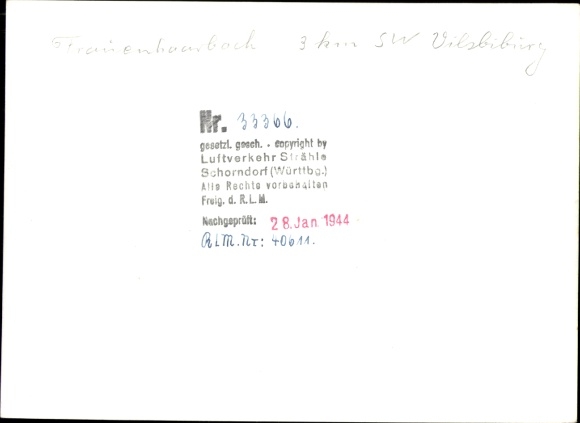 Frauenhaarbach 3 km SW Vilsbiburg
Nr. 33366.
gesetzl. gesch. - copyright by
Luftverkehr Strähle
Schorndorf (Württbg.)
Alle Rechte vorbehalten
Freig. d. R.L.M.
Nachgeprüft: 28. Jan 1944
RLM. Nr: 40611.